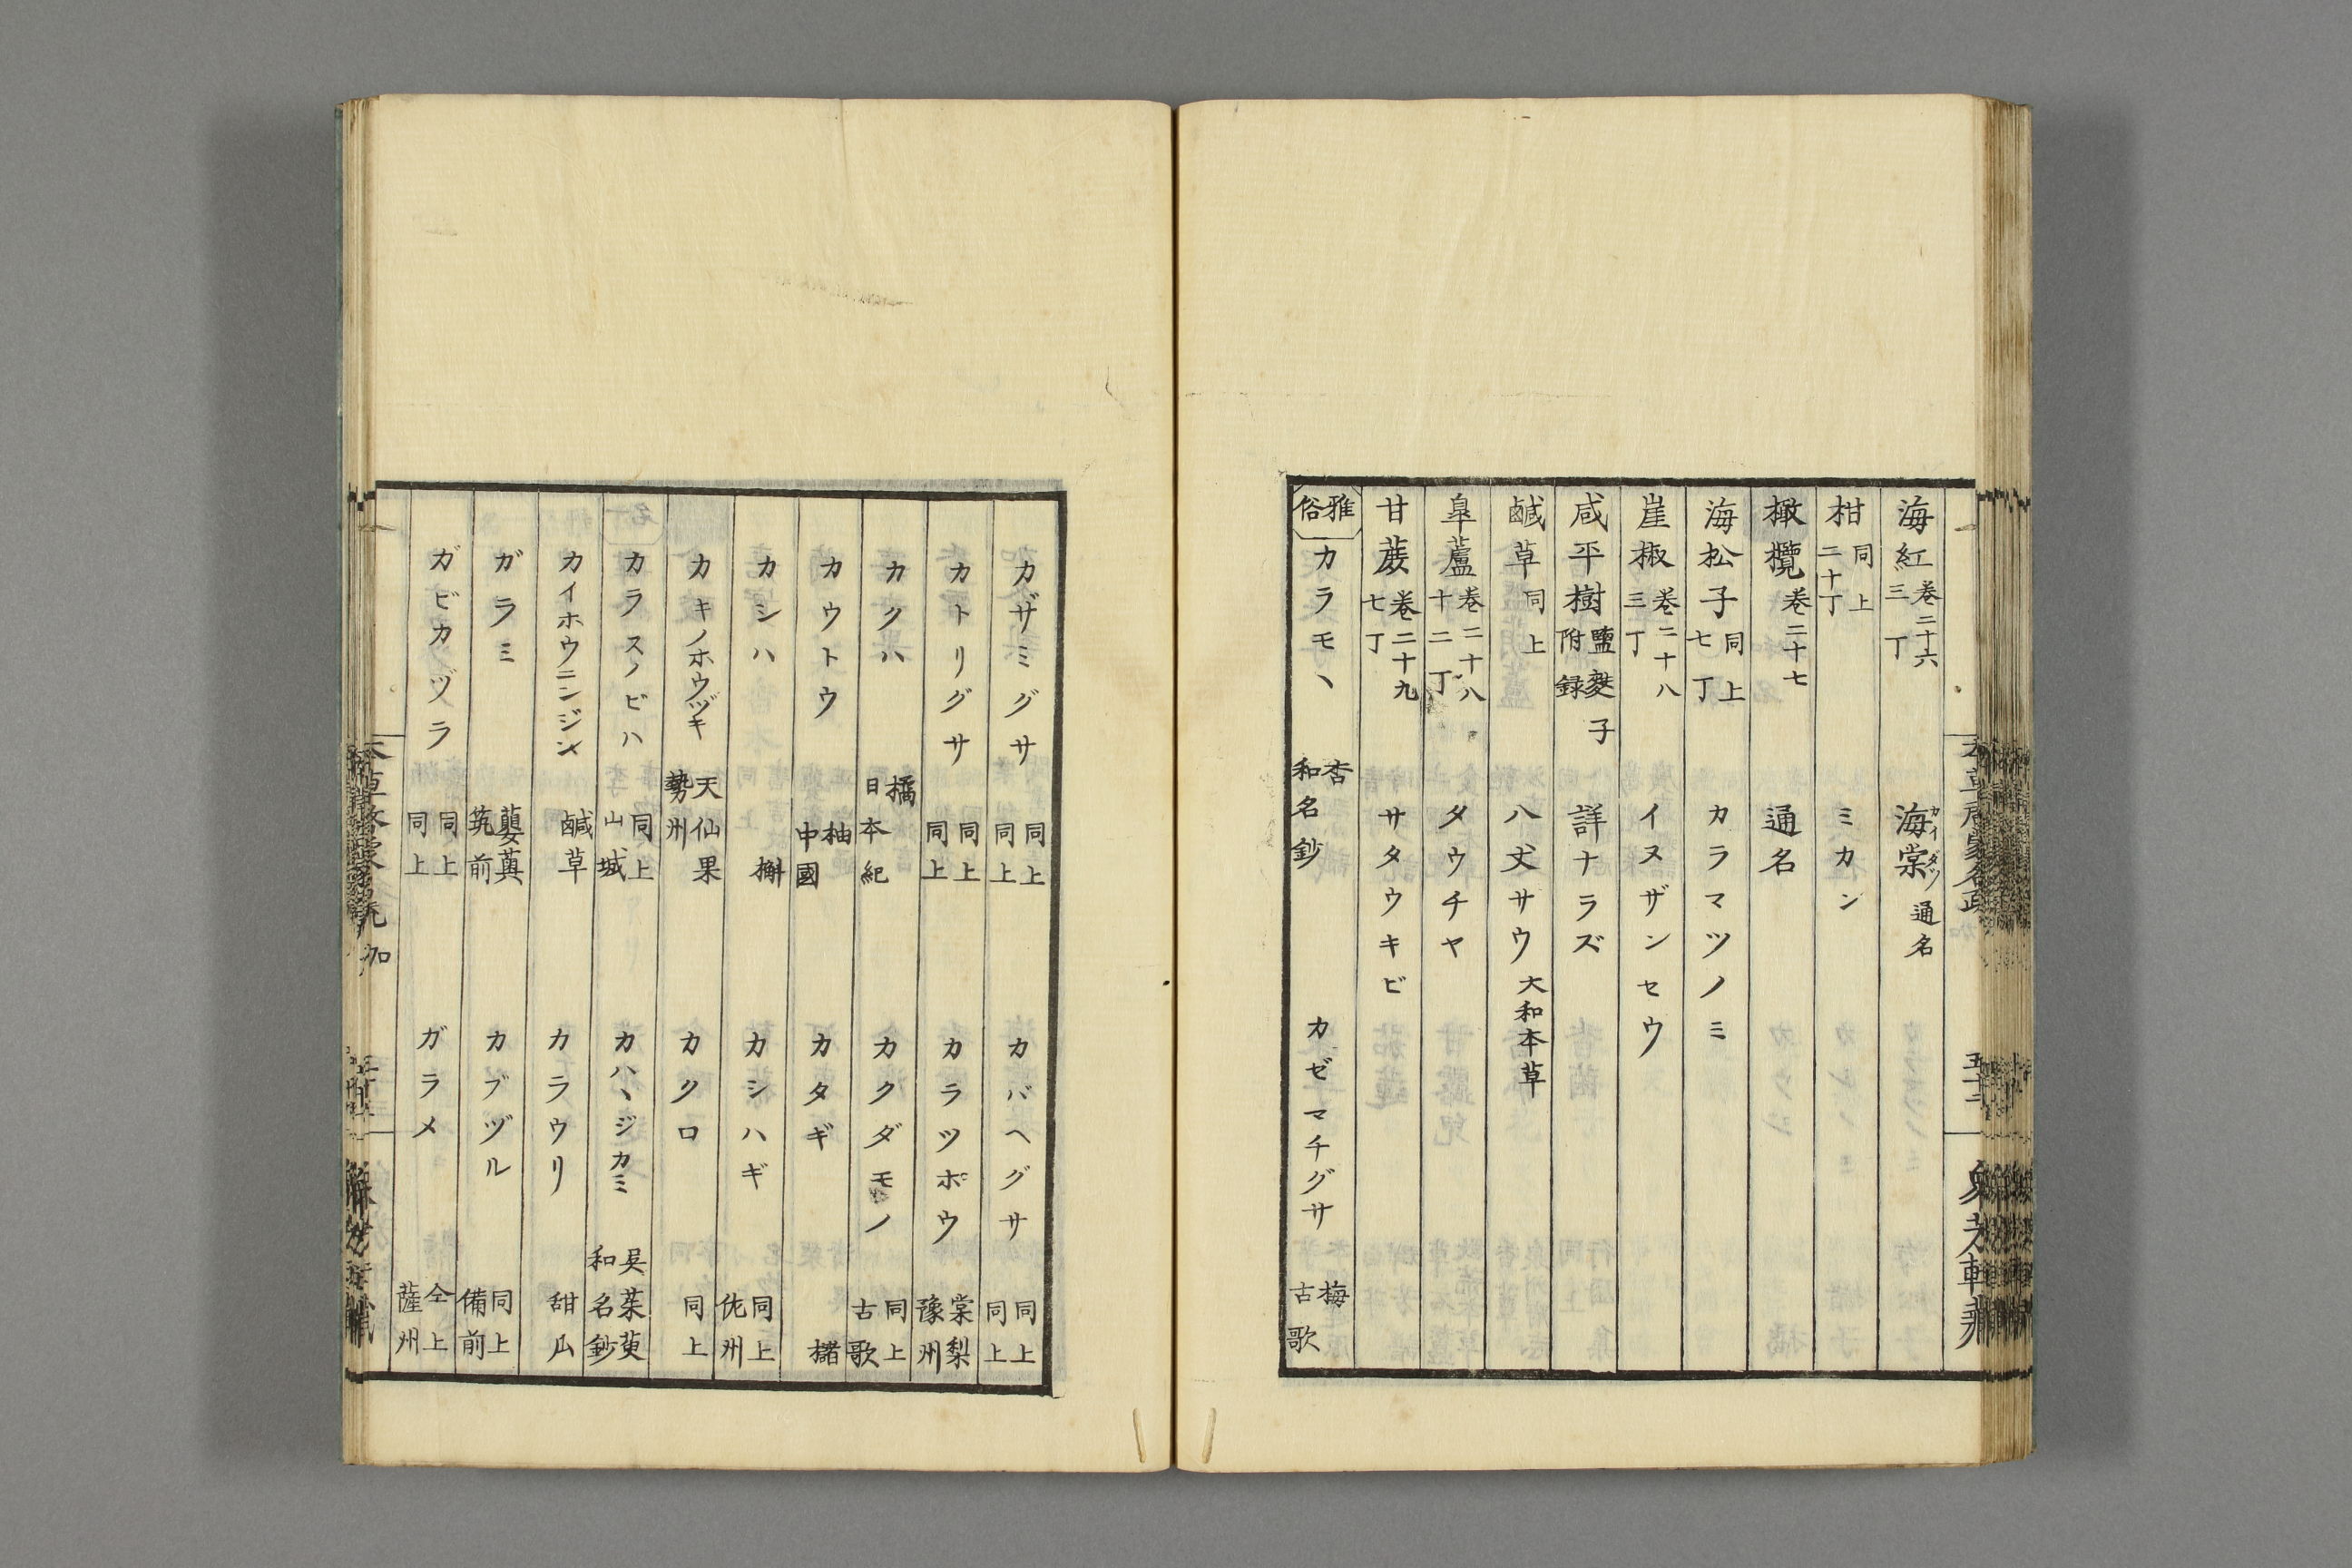 海紅 卷二十六 三丁 海棠 カイダウ 通名
柑 同上 二十丁 ミカン
橄欖 卷二十七 通名
海松子 同上 七丁 カラマツノミ
崖椒 卷二十八 三丁 イヌザンセウ
咸平樹 鹽麩子附録 詳ナラズ
鹹草 同上 八丈サウ 大和本草
皐蘆 卷二十八 十二丁 タウチヤ
甘蔗 卷二十九 七丁 サタウキビ
雅俗 カラモヽ 杏 和名鈔 カゼマチグサ 梅 古歌
カザミグサ 同上 同上 カバヘグサ 同上 同上
カトリグサ 同上 同上 カラツポウ 棠梨 豫州
カクハ 橘 日本紀 カクダモノ 同上 古歌
カウトウ 柚 中國 カタギ 櫧
カシハ 槲 カシハギ 同上 佐州
カキノホウヅキ 天仙果 勢州 カクロ 同上
カラスノビハ 同上 山城 カハヽジカミ 吳茱萸 和名鈔
カイホウニンジン 鹹草 カラウリ 甜瓜
ガラミ 蘡薁 筑前 カブヅル 同上 備前
ガビカヅラ 同上 同上 ガラメ 仝上 薩州